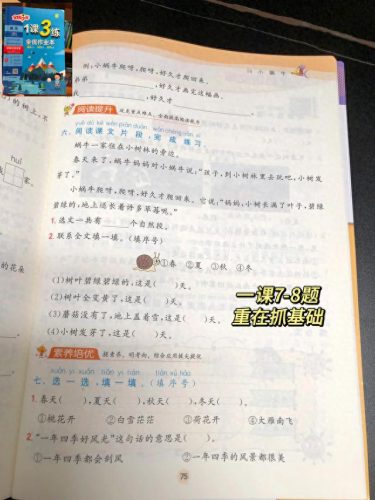 1课3练
全优作业本
小蜗牛
例:小蜗牛爬呀,爬呀,好久才爬回来。
弟弟
,好久才画完这幅画。
,好久才
。
阅读提升
六、阅读课文片段,完成练习。
蜗牛一家住在小树林的旁边。
春天来了,蜗牛妈妈对小蜗牛说:“孩子,到小树林里去玩吧,小树发
芽了。”
小蜗牛爬呀,爬呀,好久才爬回来。它说:“妈妈,小树长满了叶子,碧绿
碧绿的,地上还长着许多草莓呢。”
1. 选文一共有 个自然段。
2. 联系全文填一填。(填序号)
①春 ②夏 ③秋 ④冬
(1)树叶碧绿碧绿的,这是( )天。
(2)树叶全变黄了,这是( )天。
(3)蘑菇没有了,地上盖着雪,这是( )天。
(4)小树发芽了,这是( )天。
一课7-8题
重在抓基础
素养培优
七、选一选,填一填。(填序号)
1. 春天( ),夏天( ),秋天( ),冬天( )。
①桃花开 ②白雪茫茫 ③荷花开 ④大雁南飞
2. “一年四季好风光”这句话的意思是( )。
①一年四季都会刮风 ②一年四季的风景都很美
75
的树上,不
huī
家。
的花朵